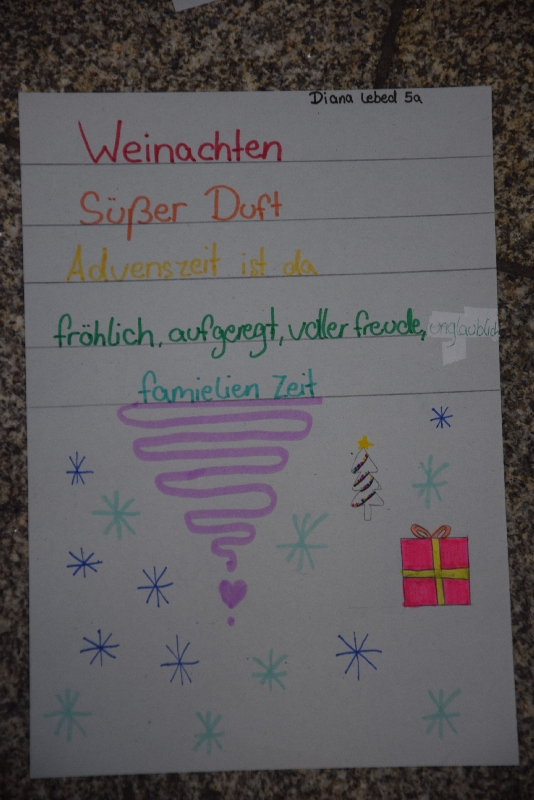 Diana Lebed 5a
Weinachten
Süßer Duft
Advenszeit ist da
fröhlich, aufgeregt, voller freude, unglaublich
famielien Zeit